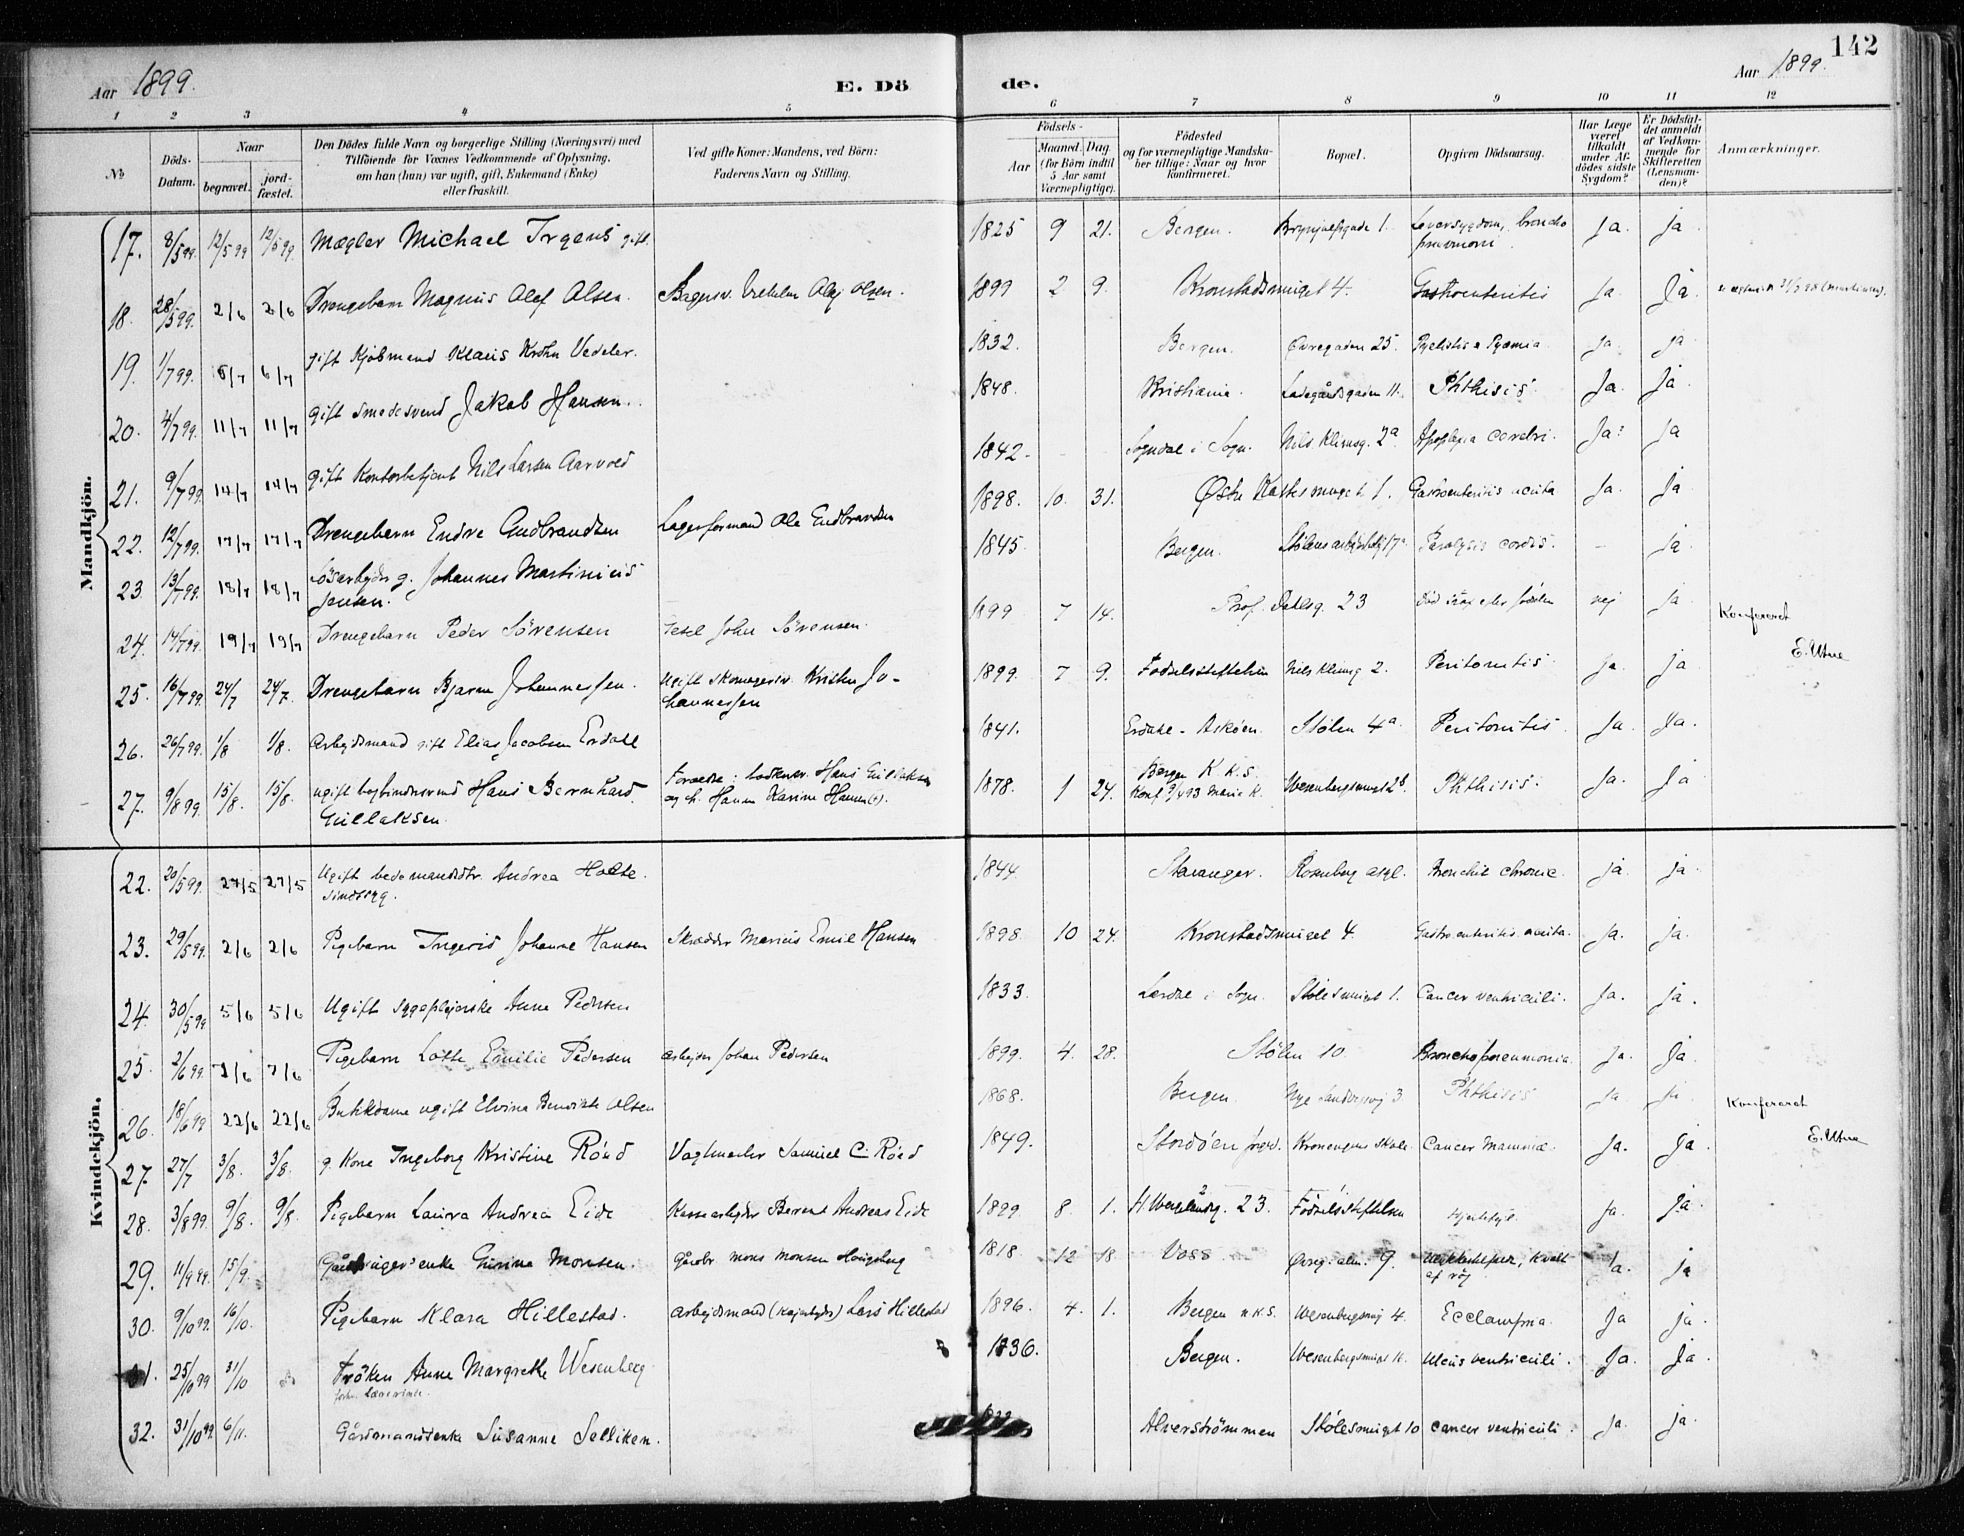 142
Aar 1899.
E. Döde.
Aar 1899.
1 2 3 4 5 6 7 8 9 10 11 12
No
Döds-Datum.
Naar
begravet.
jordfæstet.
Den Dödes fulde Navn og borgerlige Stilling (Næringsvei) med
Tilföiende for Voxnes Vedkommende af Oplysning,
om han (hun) var ugift, gift, Enkemand (Enke)
eller fraskilt.
Ved gifte Koner: Mandens, ved Börn:
Faderens Navn og Stilling.
Födsels-
Aar
Maaned. Dag
(for Börn indtil
5 Aar samt
Værnepligtige).
Födested
og for værnepligtige Mandskaber tillige: Naar og hvor
konfirmeret.
Bopæl.
Opgiven Dödsaarsag.
Har Læge
været
tilkaldt
under Afdödes sidste
Sygdom?
Er Dödsfaldet anmeldt
af Vedkommende for
Skifteretten
(Lensmanden)?
Anmærkninger.
Mandkjön.
17. 8/5 99. 12/5 99 12/5 99. Mægler Michael Irgens gift. 1825 9 21. Bergen. 1. Leversygdom, broncho pneumoni Ja. ja
18. 28/5 99. 2/6 2/6 Drengebarn Magnus Olaf Olsen. Olaf Olsen. 1899 2 9. Kronstadsmuget 4. Gastroenteritis Ja. Ja
19. 1/7 99. 6/7 6/7 gift Kjöbmand Klaus Krohn Vedeler. 1832. Bergen. Øvregaden 25. Pyelitis Pyæmia Ja. ja
20. 4/7 99. 11/7 11/7 gift smedesvend Jakob Hansen. 1848. Kristiania. Ladegårdsgaden 11. Phthisis. Ja. Ja
21. 9/7 99. 14/7 14/7 gift Kontorbetjent Nils Larsen Aarvold 1842 Sogndal i Sogn. Nils Klimsg. 2a. Apoplexia cerebri. Ja. ja
22. 12/7 99. 17/7 17/7 Drengebarn Endre Gudbrandsen Lagerformand Ole Gudbrandsen 1898. 10. 31. Østre 1. Gastroenteritis acuta Ja. Ja
23. 13/7 99. 18/7 18/7 Løsarbejder g. Johannes Martinius Jensen. 1845. Bergen. Paralysis cordis. – ja
24. 14/7 99. 19/7 19/7 Drengebarn Peder Sörensen John Sörensen. 1899 7 14. Prof. Dahlsg. 23 Död efter födslen nej ja Konfereret E. Utne
25. 16/7 99. 24/7 24/7. Drengebarn Bjarne Johannessen. Ugift skomagersv. Kristen Johannessen 1899. 7 9. Födselsstiftelsen Nils Klimsg 2. Peritonitis Ja. ja
26. 26/7 99. 1/8 1/8. Arbejdsmand gift Elias Jacobsen Erdal 1841. Erdal - Askøen. Stølen 4a. Peritonitis Ja. Ja.
27. 9/8 99. 15/8. 15/8. ugift bogbindersvend Hans Bernhard Gullaksen. Forældre: Hans Gullaksen og h. Hanna Karine Hansen. 1878. 1 24. Bergen K. K. S. Konf. Marie K. Wesenbergsmuget 2b. Phthisis. Ja. Ja
Kvindekjön.
22. 20/5 99. 27/5 27/5 Ugift Andrea Holte. sindssyg. 1844 Stavanger. Rosenberg asyl. Bronchit chronic. ja. ja.
23. 29/5 99. 2/6 2/6 Pigebarn Ingerid Johanne Hansen Skrædder Marius Emil Hansen 1898. 10 24. Kronstadsmuget 4. Gastroenteritis acuta. Ja. ja.
24. 30/5 99 5/6 5/6 Ugift sygeplejerske Anne Pedersen 1833. Lærdal i Sogn. Stølesmuget 1. Cancer ventriculi. Ja. ja.
25. 2/6 99. 7/6 7/6 Pigebarn Lotte Emilie Pedersen arbejder Johan Pedersen 1899. 4. 28. Stølen 10. Bronchopneumonia Ja. Ja
26. 18/6 99 22/6 22/6 Butikdame ugift Elvina Olsen 1868. Bergen. Nye Sandviksvej 3 Phthisis Ja. ja. Konfereret E. Utne
27. 27/7 3/8. 3/8. g. Kone Ingeborg Kristine Röed Vagtmester Samuel C. Röed 1849. Stordøen Kronengens skole Cancer Mammæ. Ja. ja
28. 3/8 99. 9/8. 9/8. Pigebarn Laura Andrea Eide Berent Andreas Eide 1899. 8. 1. H. Wergelandsg. 23. Födselsstiftelsen Hjertefejl. Ja. ja
29. 11/9 99. 15/9. enke Gurina Monsen. Gårdbr Mons Monsen 1818. 12 18. Voss. Øvreg. alm. 9. kvalt af røg Ja. ja
30. 9/10 99. 16/10. Pigebarn Klara Hillestad. Arbejdsmand Lars Hillestad 1896. 4. 1. Bergen N.K.S. Wesenbergsmg 4. Ecclampsia. Ja ja.
31. 25/10 99 31/10 Fröken Anne Margrethe Wesenberg. forhv. Lærerinde. 1836. Bergen. Wesenbergsmuget Ulcus ventriculi. Ja. Ja.
32. 31/10 99. 6/11. Gårdmandsenke Susanne Selliken. Alverströmmen Stølesmuget 10 Cancer ventriculi. Ja. ja.